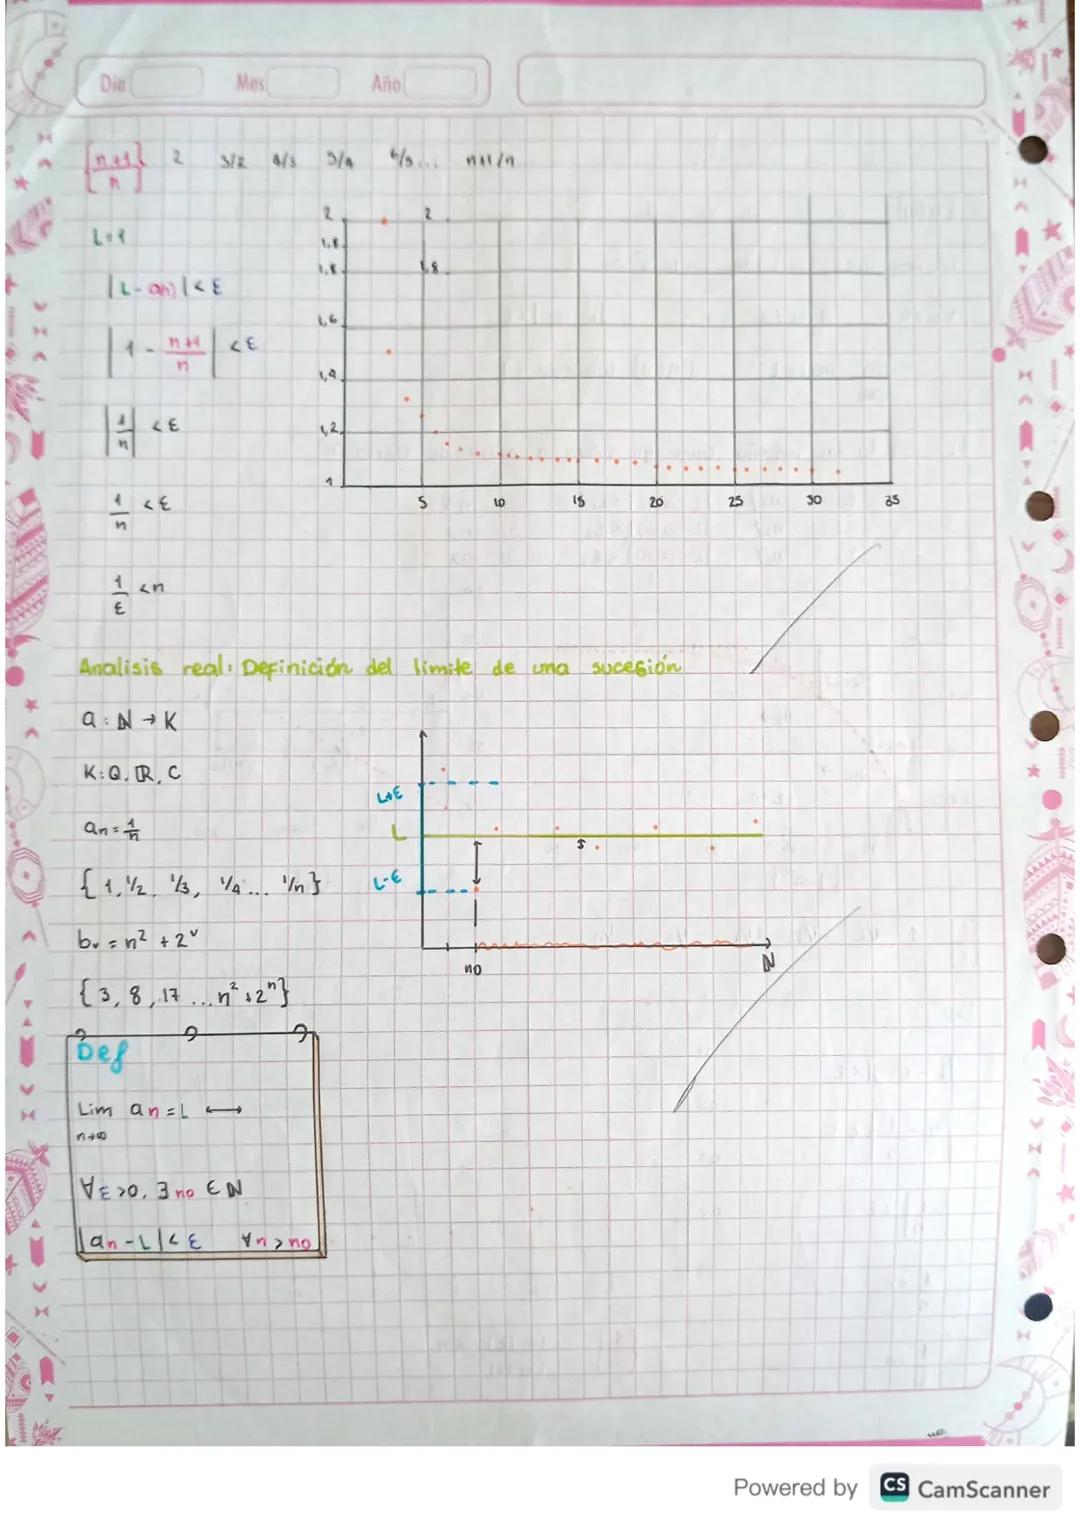 Día Mes Año
{n+1/n} 2 3/2 4/3 5/4 6/5... n+1/n
L=1
|L-an|<ε
|1 - n+1/n| <ε
|1/n| <ε
1/n <ε
1/ε <n
2 2
1,8
1,8 1,8
1,6
1,4
1,2
1
5 10 15 20 25 30 35
Analisis real: Definición del limite de una sucesión
a : ℕ → K
K: Q, ℝ, C
an = 1/n
{ 1, 1/2, 1/3, 1/4 ... 1/n }
bν = n² + 2ν
{ 3, 8, 17 ... n² + 2ⁿ }
L+ε
L
L-ε
no ℕ
Def
Lim an = L ⟷
n→∞
∀ε>0, ∃ no ∈ ℕ
|an - L|< ε ∀n > no
Powered by CS CamScanner